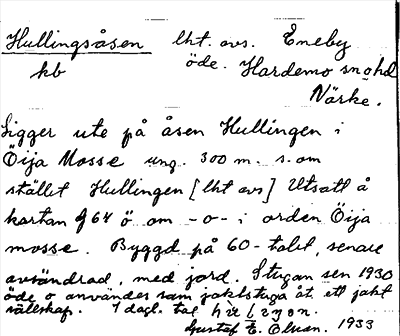 Hullingsåsen lht. avs. Eneby
kb öde. Hardemo sn o hd
Närke.
Ligger ute på åsen Hullingen i
Öija Mosse ung. 300 m. s. om
stället Hullingen [lht avs] Utsatt å
kartan 964 ö om -o- i orden Öija
mosse. Byggd på 60-talet, senare
avsöndrad, med jord. Stugan sen 1930
öde o användes som jaktstuga åt ett jakt
sällskap. I dagl. tal
Gustaf E. Olsson. 1933